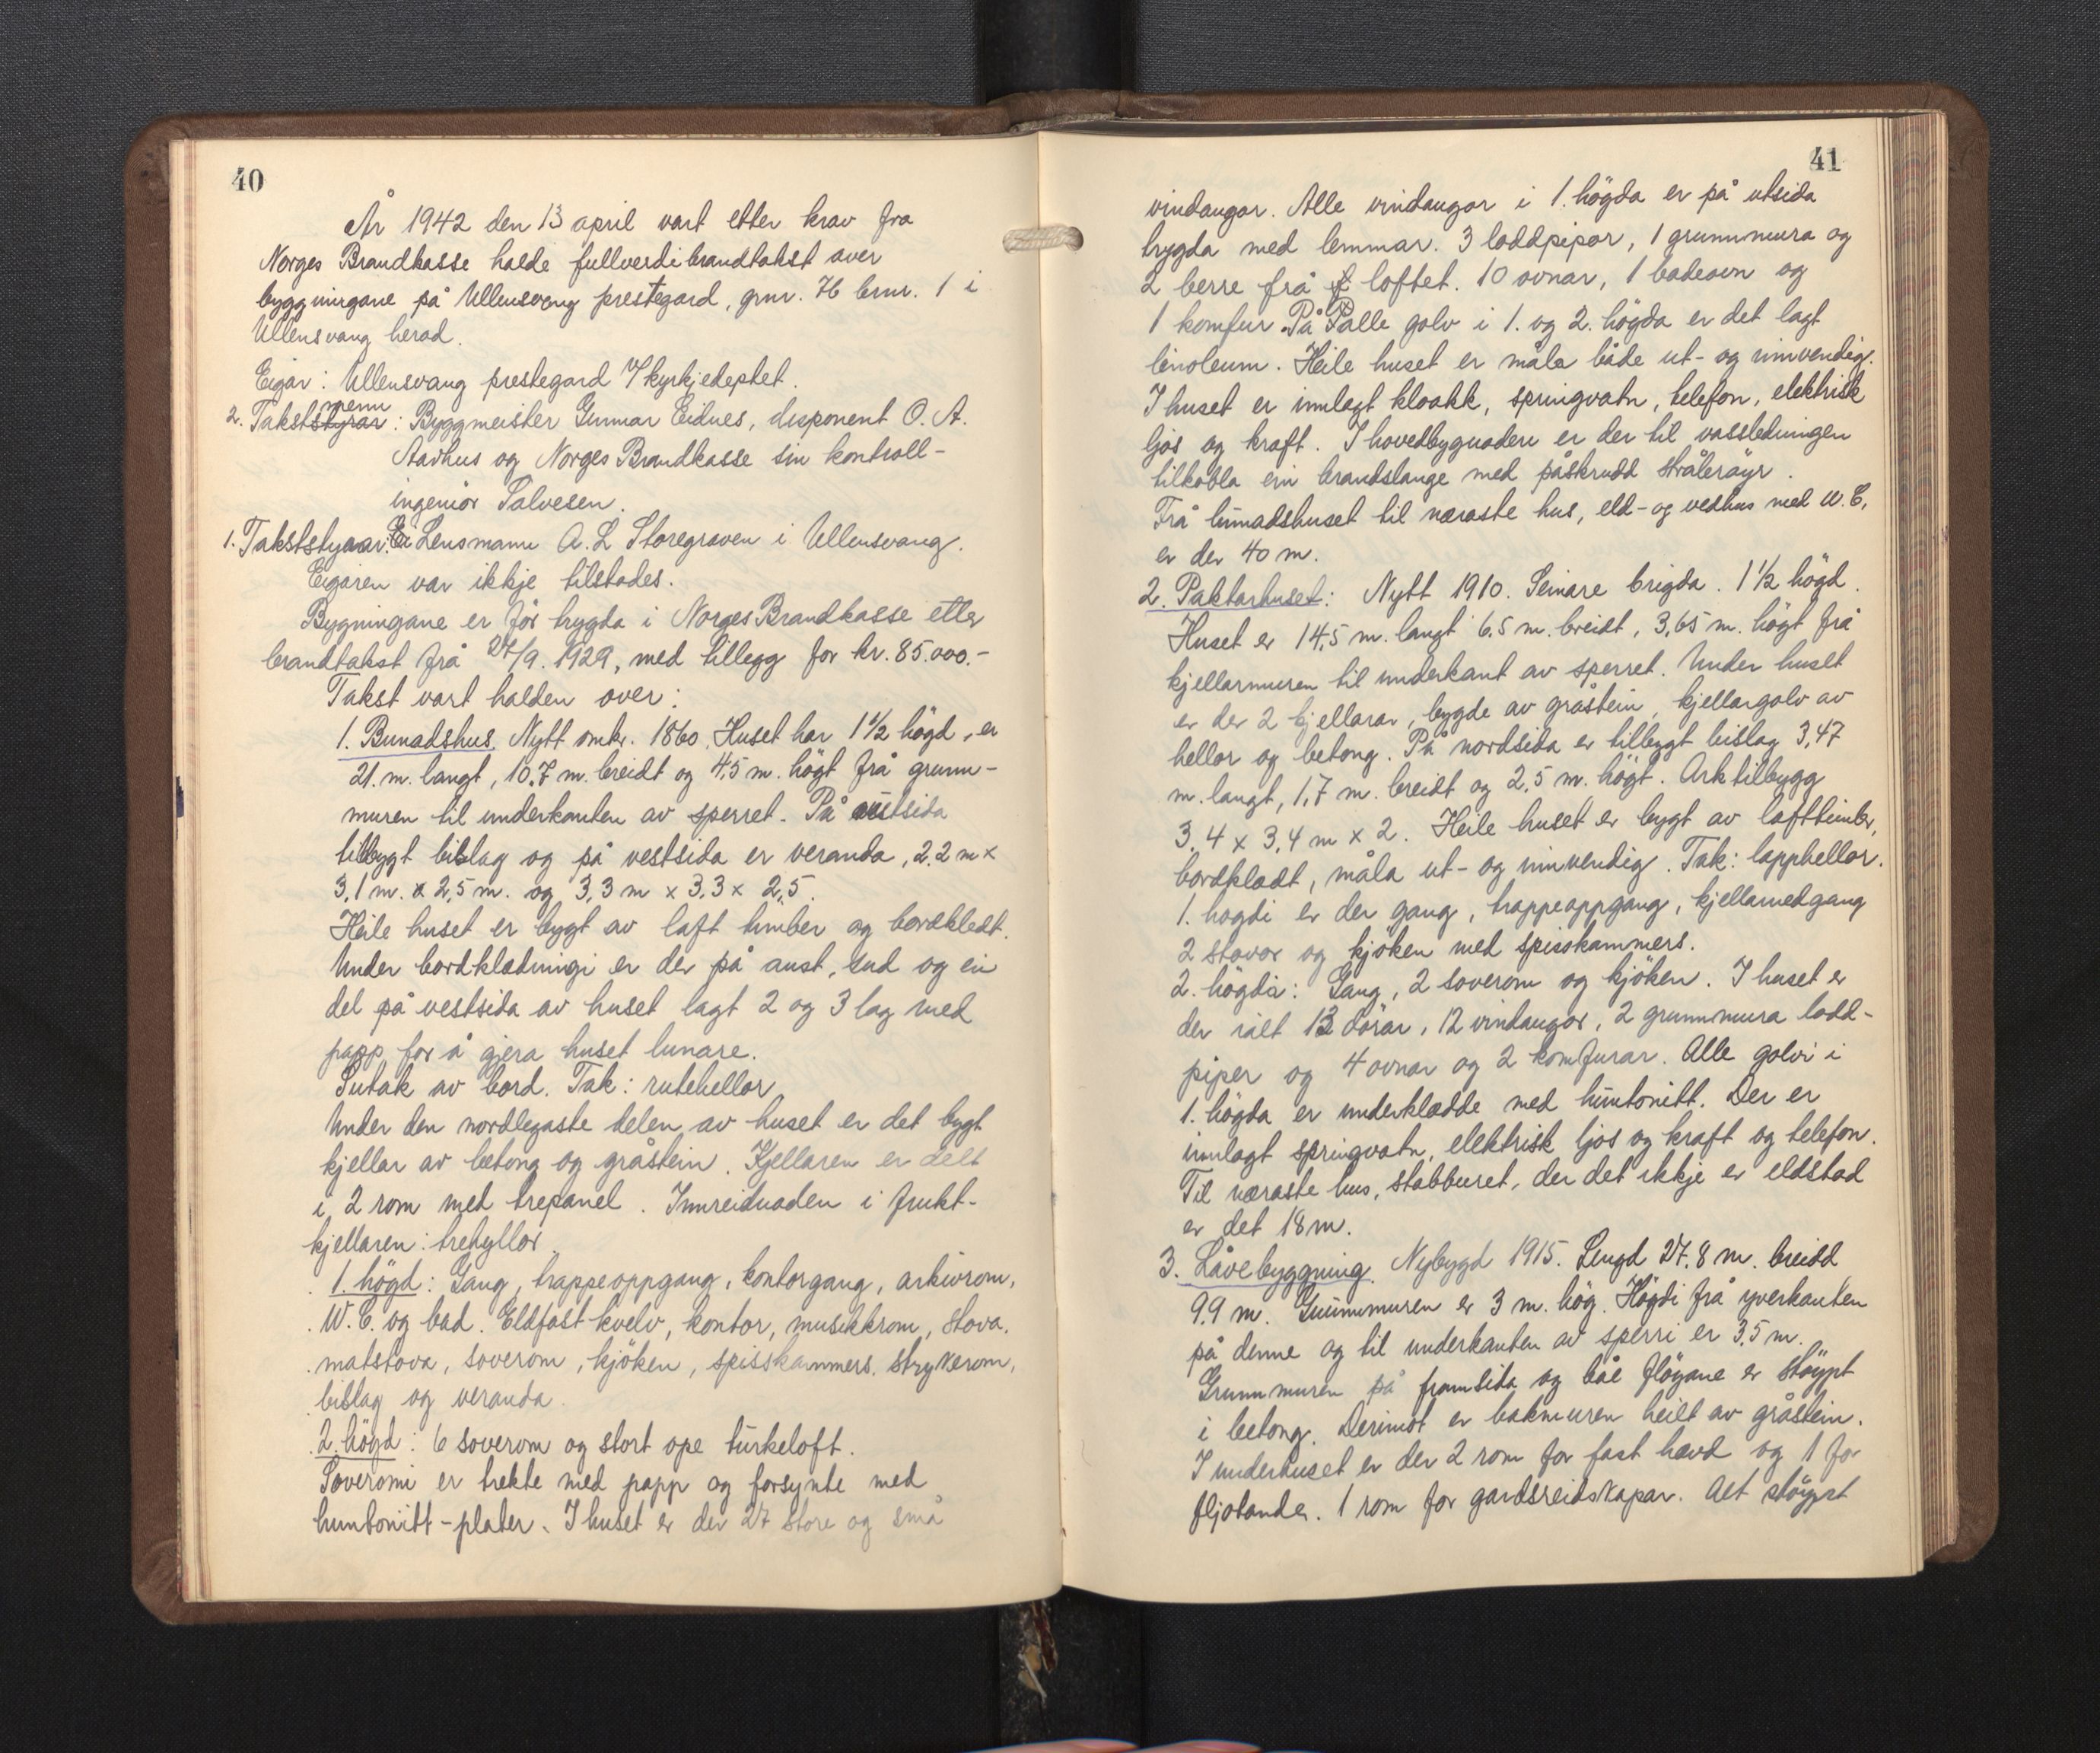 40
År 1942 den 13 april vart etter krav fra
Norges Brandkasse halde fullverdibrandtakst over
byggningane på Ullensvang prestegard, gnr. 76 brnr. 1 i
Ullensvang herad.
Eigar: Ullensvang prestegard ⁒ kyrkjedeptet.
2. Takststyrar menn: Byggmeister Gunnar Eidnes, disponent O. A.
Aarhus og Norges Brandkasse sin kontroll-
ingeniör Salvesen.
1. Takststyrar: Lensmann A. L Storegraven i Ullensvang.
Eigaren var ikkje tilstades.
Bygningane er för trygda i Norges Brandkasse etter
brandtakst frå 24/9. 1929, med tillegg for kr. 85.000.-
Takst vart halden over:
1. Bunadshus. Nytt omkr. 1860. Huset har 1 1/2 högd, er
21. m. langt, 10.7 m. breidt og 4,5 m. högt frå grunn-
muren til underkanten av sperret. På austsida
tilbygt bislag og på vestsida er veranda, 2.2 m x
3,1 m. x 2,5 m. og 3,3 m x 3.3 x 2,5.
Heile huset er bygt av laft timber og bordkledt.
Under bordklædningi er der på aust, sud og ein
del på vestsida av huset lagt 2 og 3 lag med
papp for å gjera huset lunare.
Sutak av bord. Tak: rutehellor
Under den nordlegaste delen av huset er det bygt
kjellar av betong og gråstein. Kjellaren er delt
i 2 rom med trepanel. Innreidnaden i frukt-
kjellaren: trehyllor.
1. högd: Gang, trappeoppgang, kontorgang, arkivrom,
W. C. og bad. Eldfast kvelv, kontor, musikkrom, stova.
matstova, soverom, kjöken, spisskammers. strykerom,
bislag og veranda.
2. högd: 6 soverom og stort ope türkeloft.
Soveromi er trekte med papp og forsynte med
huntonitt-plater. I huset er der 27 store og små
41
vindaugor. Alle vindaugor i 1. högda er på utsida
trygda med lemmar. 3 loddpipor, 1 grunnmura og
2 berre frå loftet. 10 ovnar, 1 badeovn og
1 komfur. På alle golv i 1. og 2. högda er det lagt
linoleum. Heile huset er måla både ut- og innvendig.
I huset er innlagt kloakk, springvatn, telefon, elektrisk
ljos og kraft. I hovedbygnaden er der til vassledningen
tilkobla ein brandslange med påskrudd stråleröyr.
Frå bunadshuset til næraste hus, eld- og vedhus med W. C,
er der 40 m.
2. Paktarhuset: Nytt 1910. Seinare brigda. 1 1/2 högd.
Huset er 14,5 m. langt 6,5 m. breidt, 3,65 m. högt frå
kjellarmuren til underkant av sperret. Under huset
er der 2 kjellarar, bygde av gråstein, kjellargolv av
hellor og betong. På nordsida er tilbygt bislag 3,47
m. langt, 1,7 m. breidt og 2,5 m. högt. Ark tilbygg
3.4 x 3,4 m x 2. Heile huset er bygt av lafttimber,
bordklædt, måla ut- og innvendig. Tak: lapphellor.
1. högdi er der gang, trappeoppgang, kjellarnedgang
2 stovor og kjöken med spisskammers.
2. högdi: Gang, 2 soverom og kjöken. I huset er
der ialt 13 dörar, 12 vindaugor, 2 grunnmura lodd-
piper og 4 ovnar og 2 komfurar. Alle golvi i
1. högda er underklædde med huntonitt. Der er
innlagt springvatn, elektrisk ljos og kraft og telefon.
Til næraste hus, stabburet, der det ikkje er eldstad
er det 18 m.
3. Låvebyggning. Nybygd 1915. Lengd 27.8 m. breidd
9.9 m. Grunnmuren er 3 m. hög. Högdi frå yverkanten
på denne og til underkanten av sperri er 3.5 m.
Grunnmuren på framsida og båe flöyane er stöypt
i betong. Derimot er bakmuren heilt av gråstein.
I underhuset er der 2 rom for fast hævd og 1 for
fljotande. 1 rom for gardsreidskapar. Alt stöypt